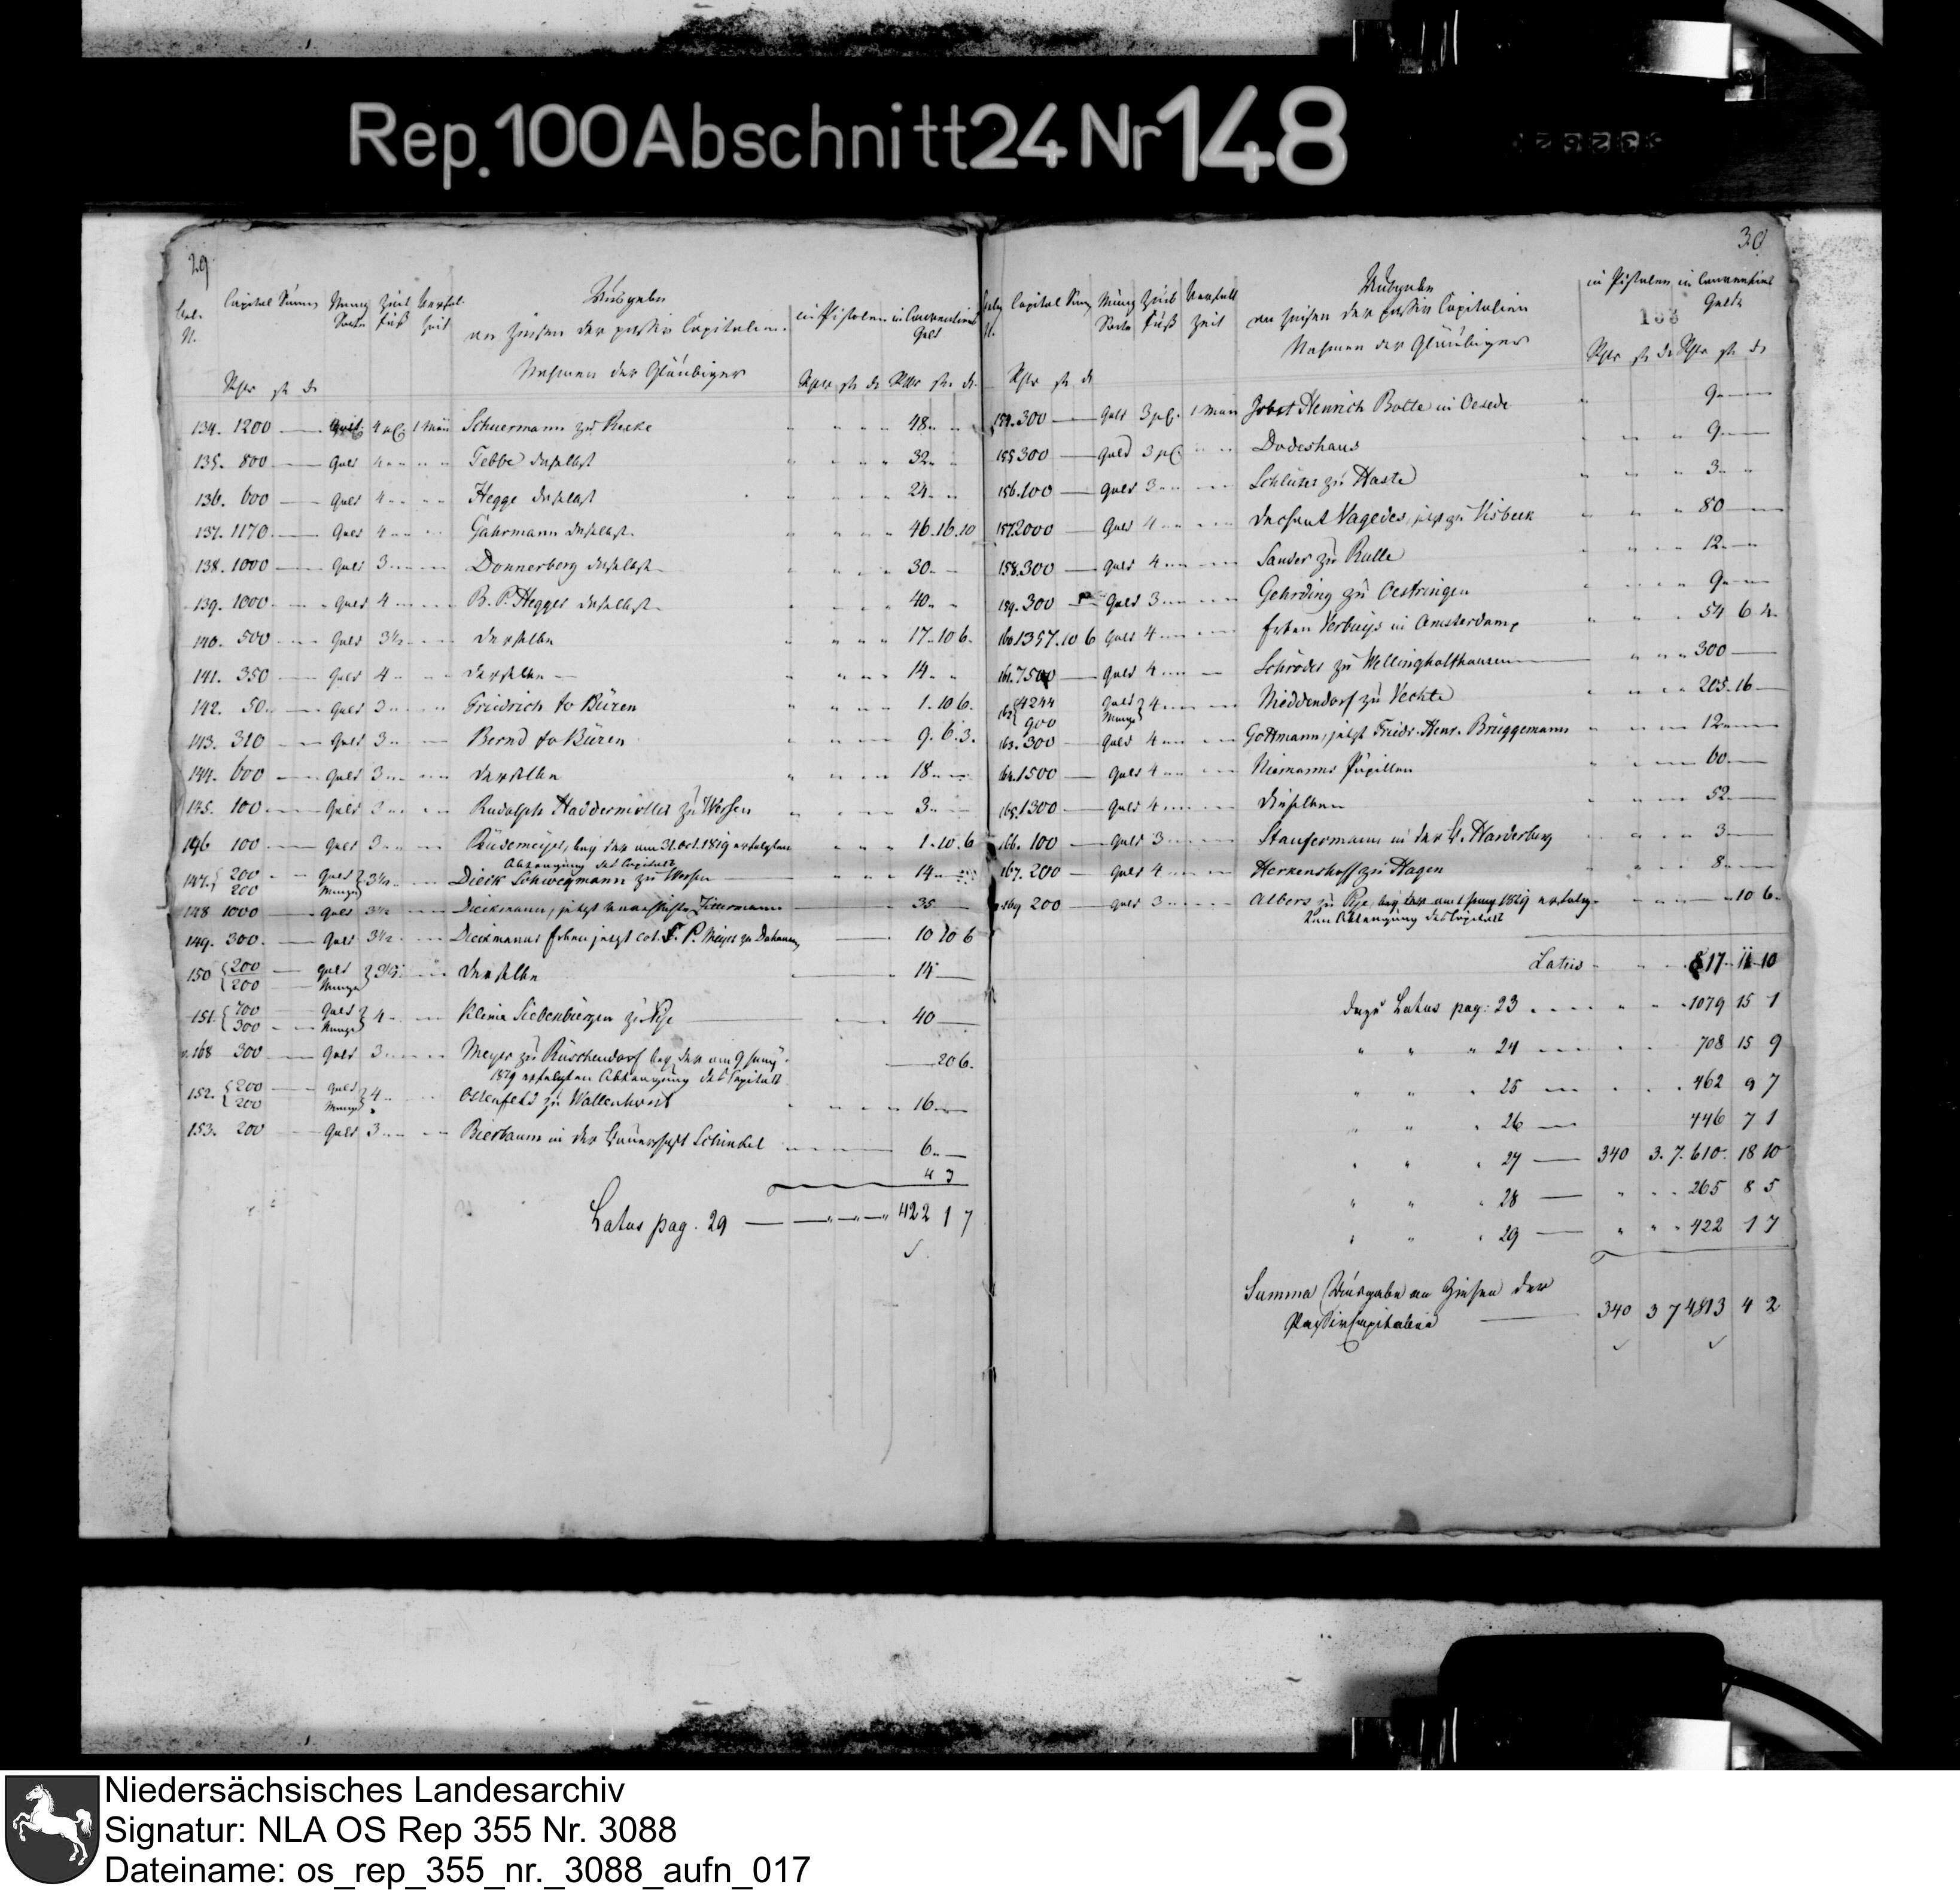 Rep. 100 Abschnitt 24 Nr 148
29
Capital Summ Münz Sorte Zins fuß Verfal. zeit
Ausgabe
an Zinsen der passiv Capitalien.
Nahmen der Gläubiger
in Pistolen in Conventions Geld
134. 1200 4 pC 1 Maii Schuermann zu Recke 48
135. 800 Gold 4 Tebbe daselbst 32
136. 600 Gold 4 Hegge daselbst 24
137. 1170 Gold 4 Gahrmann daselbst 46. 16. 10
138. 1000 Gold 3 Donnerberg daselbst 30
139. 1000 Gold 4 B. P. Hegger daselbst 40
140. 500 Gold 3½ derselbe 17. 10 6.
141. 350 Gold 4 derselbe 14
142. 50 Gold 3 Friedrich to Büren 1. 10 6.
143. 310 Gold 3 Bernd to Büren 9. 6. 3.
144. 600 Gold 3 derselbe 18
145. 100 Gold 3 Rudolph Haddermöller zu Wersen 3
146 100 Gold 3 bey der am 31. Oct. 1819 erfolgten 1. 10. 6
Ablegung des Capitals
147. { 200 Gold 200 Münze } 3½ Dieck Schwegmann zu Wersen 14
148 1000 Gold 3½ Dieckmann, jetzt 35
149. 300. Gold 3½ Dieckmanns Erben jetzt Col. 10 10 6
150 { 200 Gold 200 Münze } 3½ derselbe 14
151. { 700 Gold 300 Münze } 4 Kleine Siebenbürgen zu Pye 40
168 300 Gold 3 Meyer zu Rüschendorf bey der am 9 Juny 20 6.
1819 erfolgten Ablegung des Capitals
152. { 200 Gold 200 Münze } 4 Ostenfeld zu Wallenhorst 16
153. 200 Gold 3 Bierbaum in der Bauerschaft Schinkel 6
Latus pag. 29 422 1 7
30
Capital Sum Münz Sorte Zins fuß Verfall zeit
Ausgabe
an Zinsen der passiv Capitalien
Nahmen der Gläubiger
in Pistolen in Conventions Gelde
103
154. 300 Gold 3 pC. 1 Maii Jobst Henrich Botte in Oesede 9
155 300 Gold 3 pC Dodeshaus 9
156. 100 Gold 3 Schlüter zu Haste 3
157 2000 Gold 4 Dechant Vagedes, jetzt zu Visbeck 80
158. 300 Gold 4 Sander zu Rulle 12
159. 300 Gold 3 Gehrding zu Oestringen 9
160. 1357. 10 6 Gold 4 Erben Verbuys in Amsterdam 54 6 4
161. 7500 Gold 4 Schröder zu Wellingholthausen 300
162 { 4244 Gold 900 Münze } 4 Middendorf zu Vechte 205. 16
163. 300 Gold 4 Gottmann, jetzt Friedr. Henr. Brüggemann 12
164. 1500 Gold 4 Niemanns Pupillen 60
165. 1300 Gold 4 dieselben 52
166. 100 Gold 3 Staufermann in der B. Harderberg 3
167. 200 Gold 4 Herkenhoff zu Hagen 8
169 200 Gold 3 Albers zu Pye, bey der am 1 Juny 1819 erfolg- 10 6.
ten Ablegung des Capitals
Latus 817. 11 10
dazu Latus pag. 23 1079 15 1
" " " 24 708 15 9
" " " 25 462 9 7
" " " 26 446 7 1
" " " 27 340 3. 7. 610. 18 10
" " " 28 265 8 5
" " " 29 422 1 7
Summa Ausgabe an Zinsen der
Passiv Capitalien 340 3 7 4813 4 2
Niedersächsisches Landesarchiv
Signatur: NLA OS Rep 355 Nr. 3088
Dateiname: os_rep_355_nr._3088_aufn_017